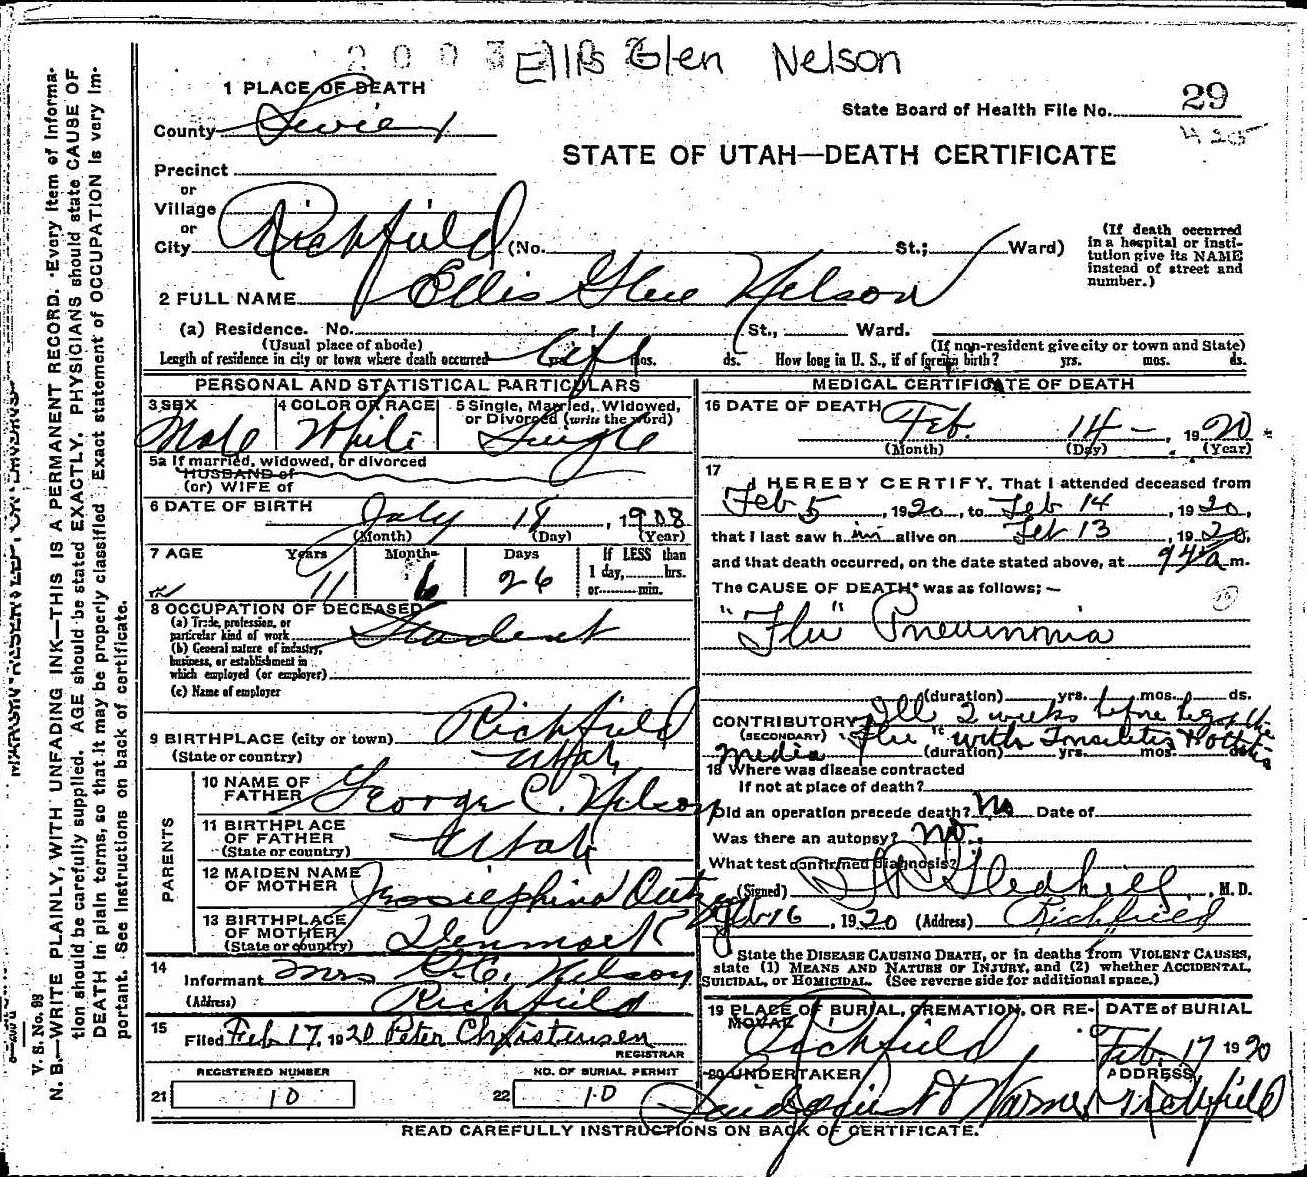 2003 Ellis Glen Nelson
1 PLACE OF DEATH
County Sevier
State Board of Health File No. 29
425
STATE OF UTAH—DEATH CERTIFICATE
Precinct
or
Village
or
City Richfield (No. St.; Ward)
(If death occurred in a hospital or institution give its NAME instead of street and number.)
2 FULL NAME Ellis Glen Nelson
(a) Residence. No. St., Ward.
(Usual place of abode) (If non-resident give city or town and State)
Length of residence in city or town where death occurred life yrs. mos. ds. How long in U. S., if of foreign birth? yrs. mos. ds.
PERSONAL AND STATISTICAL PARTICULARS
3 SEX Male
4 COLOR OR RACE White
5 Single, Married, Widowed, or Divorced (write the word) Single
5a If married, widowed, or divorced
HUSBAND of
(or) WIFE of
6 DATE OF BIRTH July 18, 1908
(Month) (Day) (Year)
7 AGE Years Months Days If LESS than
11 6 26 1 day, hrs.
or min.
8 OCCUPATION OF DECEASED
(a) Trade, profession, or particular kind of work Student
(b) General nature of industry, business, or establishment in which employed (or employer)
(c) Name of employer
9 BIRTHPLACE (city or town) Richfield
(State or country) Utah
PARENTS
10 NAME OF FATHER George C. Nelson
11 BIRTHPLACE OF FATHER (State or country) Utah
12 MAIDEN NAME OF MOTHER
13 BIRTHPLACE OF MOTHER (State or country) Denmark
14 Informant Mrs G.C. Nelson
(Address) Richfield
15 Filed Feb 17, 1920 Peter Christensen
REGISTRAR
REGISTERED NUMBER
21 10
NO. OF BURIAL PERMIT
22 10
MEDICAL CERTIFICATE OF DEATH
16 DATE OF DEATH Feb. 14 —, 1920
(Month) (Day) (Year)
17 I HEREBY CERTIFY, That I attended deceased from
Feb 5, 1920, to Feb 14, 1920,
that I last saw him alive on Feb 13, 1920,
and that death occurred, on the date stated above, at a m.
The CAUSE OF DEATH* was as follows: —
"Flu" Pneumonia
(duration) yrs. mos. ds.
CONTRIBUTORY Ill 2 weeks before by the
(SECONDARY) "Flu" with Tonsilitis & otitis
media (duration) yrs. mos. ds.
18 Where was disease contracted
If not at place of death?
Did an operation precede death? No Date of
Was there an autopsy? No.
What test confirmed diagnosis?
(Signed) Gledhill, M. D.
Feb 16, 1920 (Address) Richfield
State the DISEASE CAUSING DEATH, or in deaths from VIOLENT CAUSES, state (1) MEANS AND NATURE OF INJURY, and (2) whether ACCIDENTAL, SUICIDAL, or HOMICIDAL. (See reverse side for additional space.)
19 PLACE OF BURIAL, CREMATION, OR REMOVAL Richfield
DATE of BURIAL Feb. 17 1920
20 UNDERTAKER
ADDRESS Richfield
READ CAREFULLY INSTRUCTIONS ON BACK OF CERTIFICATE.
MARGIN RESERVED FOR BINDING
V. S. No. 98
N. B.—WRITE PLAINLY, WITH UNFADING INK—THIS IS A PERMANENT RECORD. Every item of information should be carefully supplied. AGE should be stated EXACTLY. PHYSICIANS should state CAUSE OF DEATH in plain terms, so that it may be properly classified. Exact statement of OCCUPATION is very important. See instructions on back of certificate.